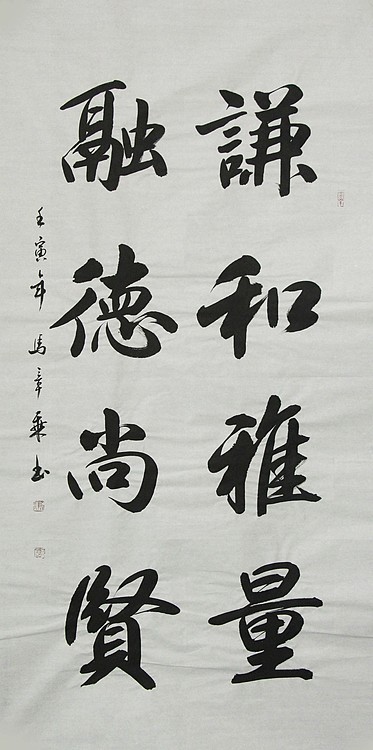 謙和雅量
融德尚賢
壬寅年馬章乘書